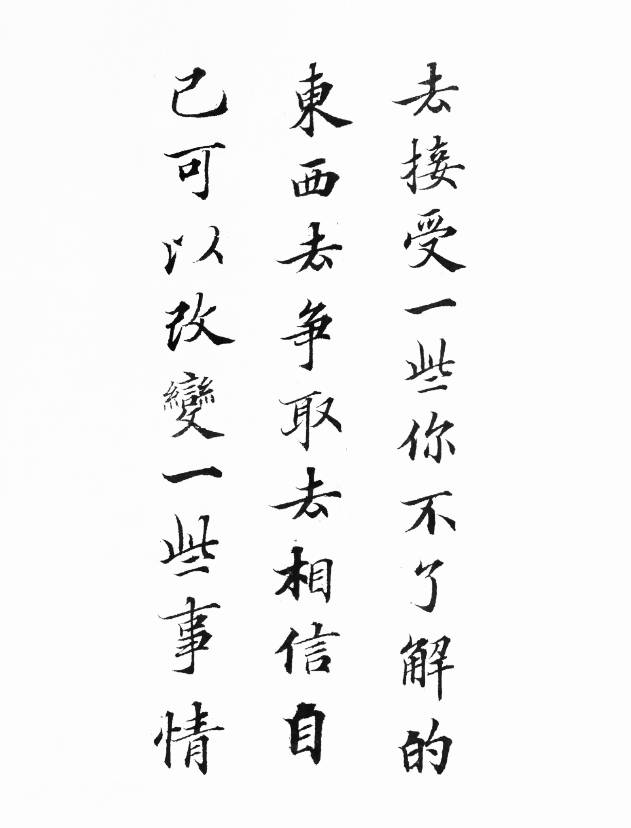 去接受一些你不了解的
東西去争取去相信自
己可以改變一些事情